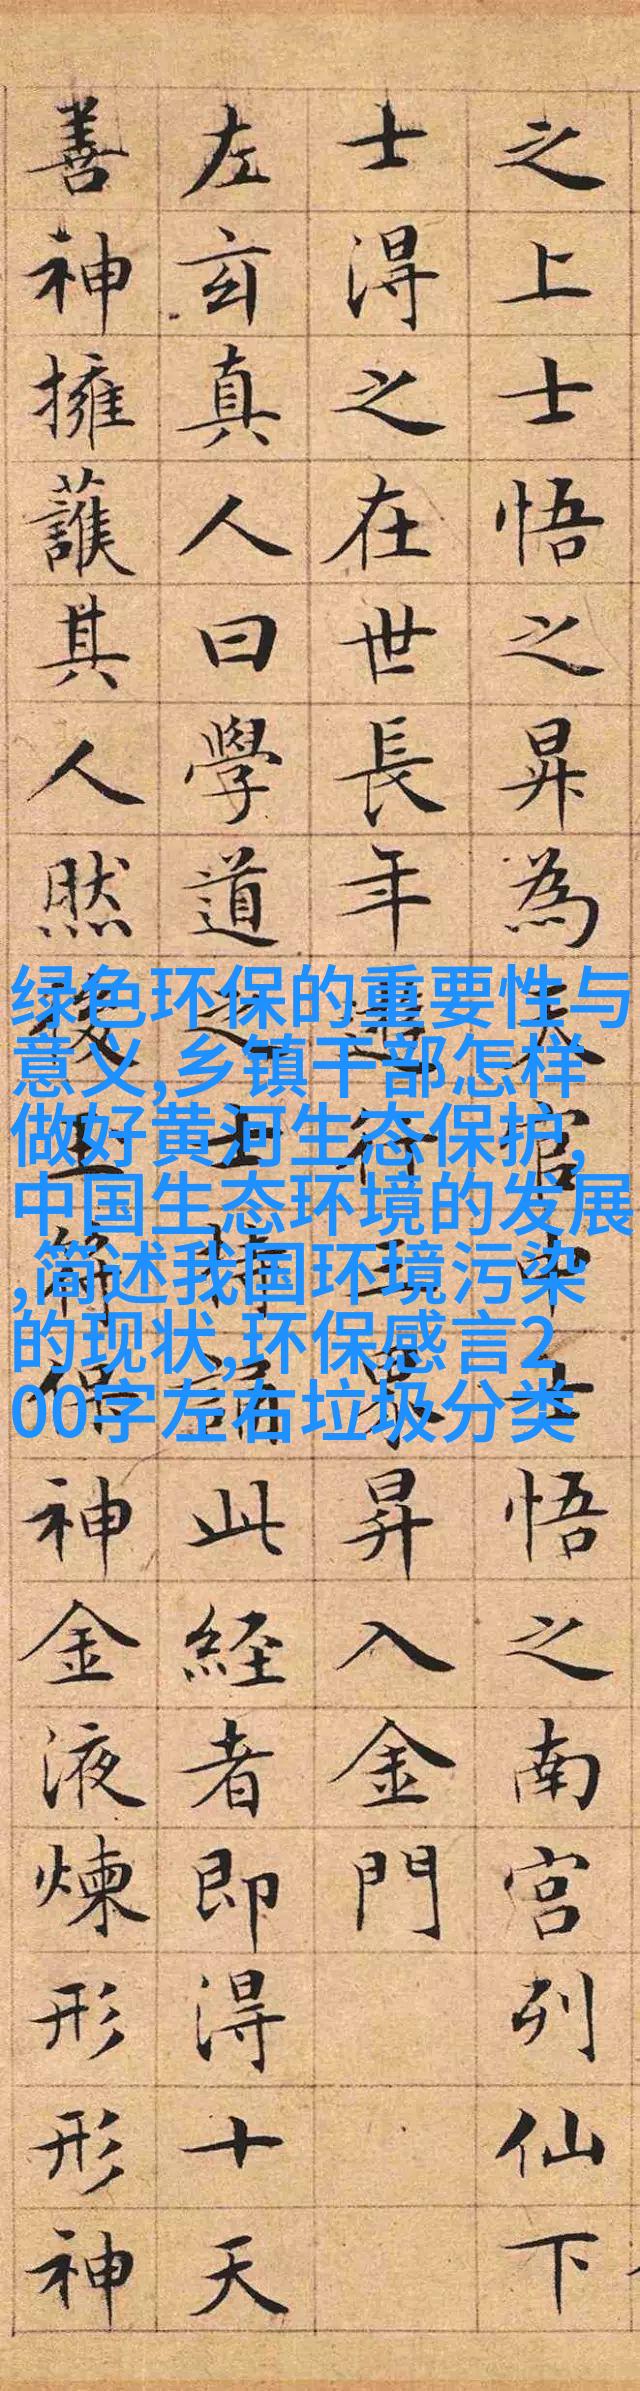 之上士悟之昇為天官中士悟之南宮列仙下
士得之在世長年遊行三界昇入金門
左玄真人曰學道之士持誦此經者即得十天
善神擁護其人然後玉符保神金液煉形形神
绿色环保的重要性与
意义,乡镇干部怎样
做好黄河生态保护,
中国生态环境的发展
,简述我国环境污染
的现状,环保感言2
00字左右垃圾分类